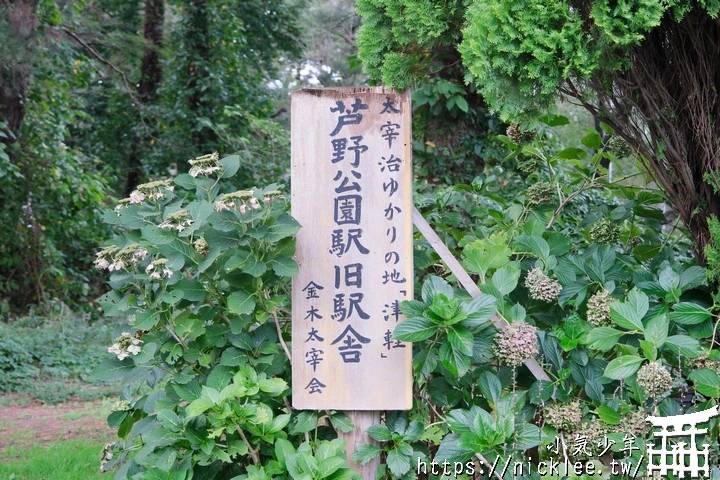 太宰治ゆかりの地「津軽」
芦野公園駅旧駅舎
金木太宰会
小氣少年
https://nicklee.tw/